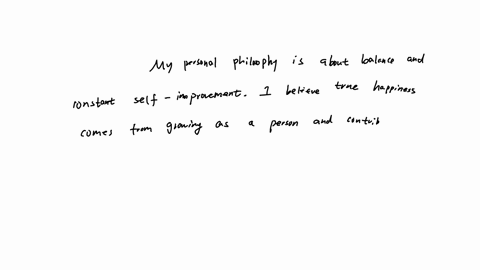 My personal philosophy is about balance and
constant self-improvement. I believe true happiness
comes from growing as a person and contrib